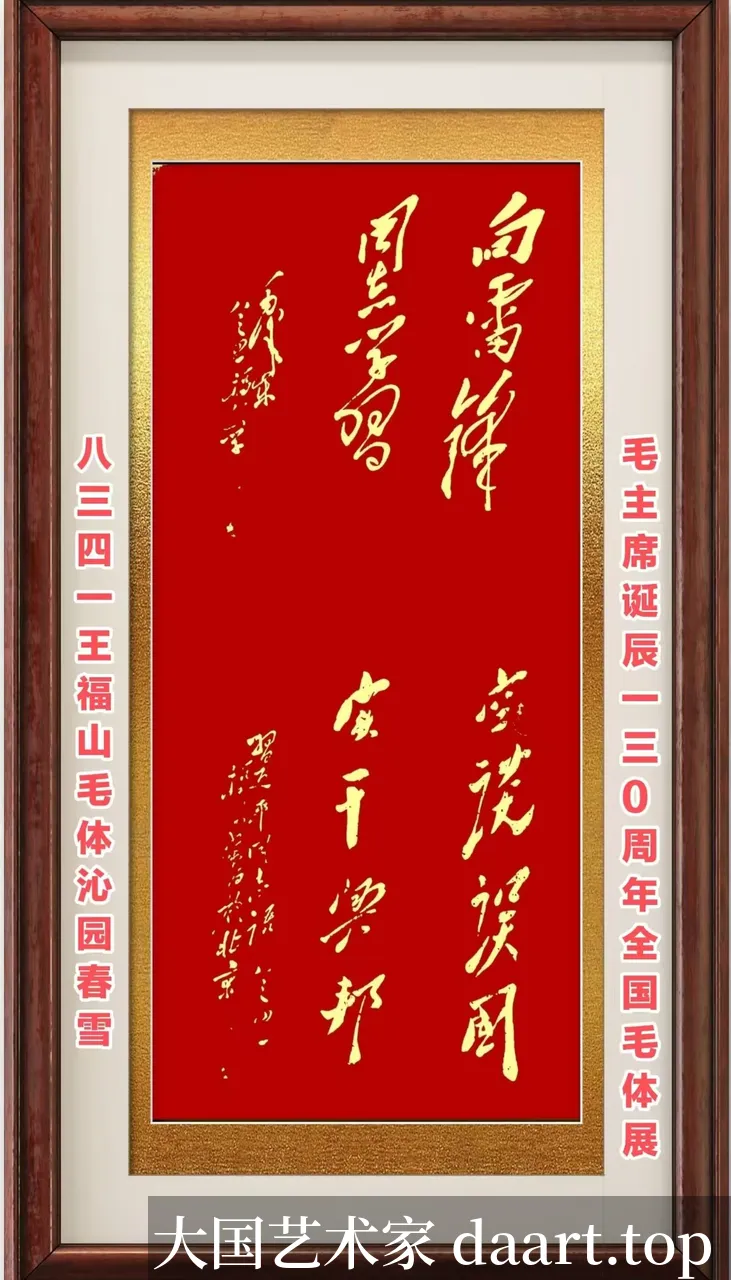 毛主席诞辰一三0周年全国毛体展
向雷锋
同志学习
毛泽东
空谈误国
实干兴邦
习近平同志语
八三四一王福山毛体沁园春雪
大国艺术家 daart.top